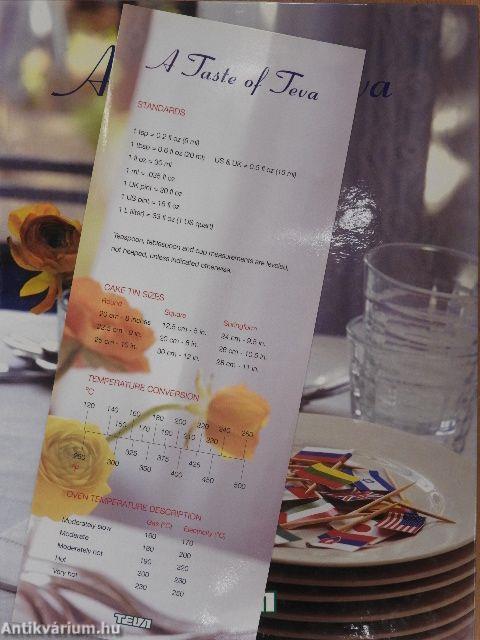 A Taste of Teva
A va
STANDARDS
1 tsp = 0.2 fl oz (5 ml)
1 tbsp = 0.6 fl oz (20 ml) US & UK = 0.5 fl oz (15 ml)
1 fl oz = 30 ml
1 ml = .035 fl oz
1 UK pint = 20 fl oz
1 US pint = 16 fl oz
1 L (liter) = 33 fl oz (1 US quart)
Teaspoon, tablespoon and cup measurements are leveled,
not heaped, unless indicated otherwise.
CAKE TIN SIZES
Round Square Springform
20 cm - 8 inches 12.5 cm - 5 in. 24 cm - 9.5 in.
22.5 cm - 9 in. 20 cm - 8 in. 26 cm - 10.5 in.
25 cm - 10 in. 30 cm - 12 in. 28 cm - 11 in.
TEMPERATURE CONVERSION
°C
120 140 160 180 200 220 240 260
150 170 190 210 230
250 300 325 350 375 400 425 450 500
°F
OVEN TEMPERATURE DESCRIPTION
Gas (°C) Electricity (°C)
Moderately slow 160 170
Moderate 180 200
Moderately hot 190 220
Hot 200 230
Very hot 230 250
TEVA
Antikvárium.hu